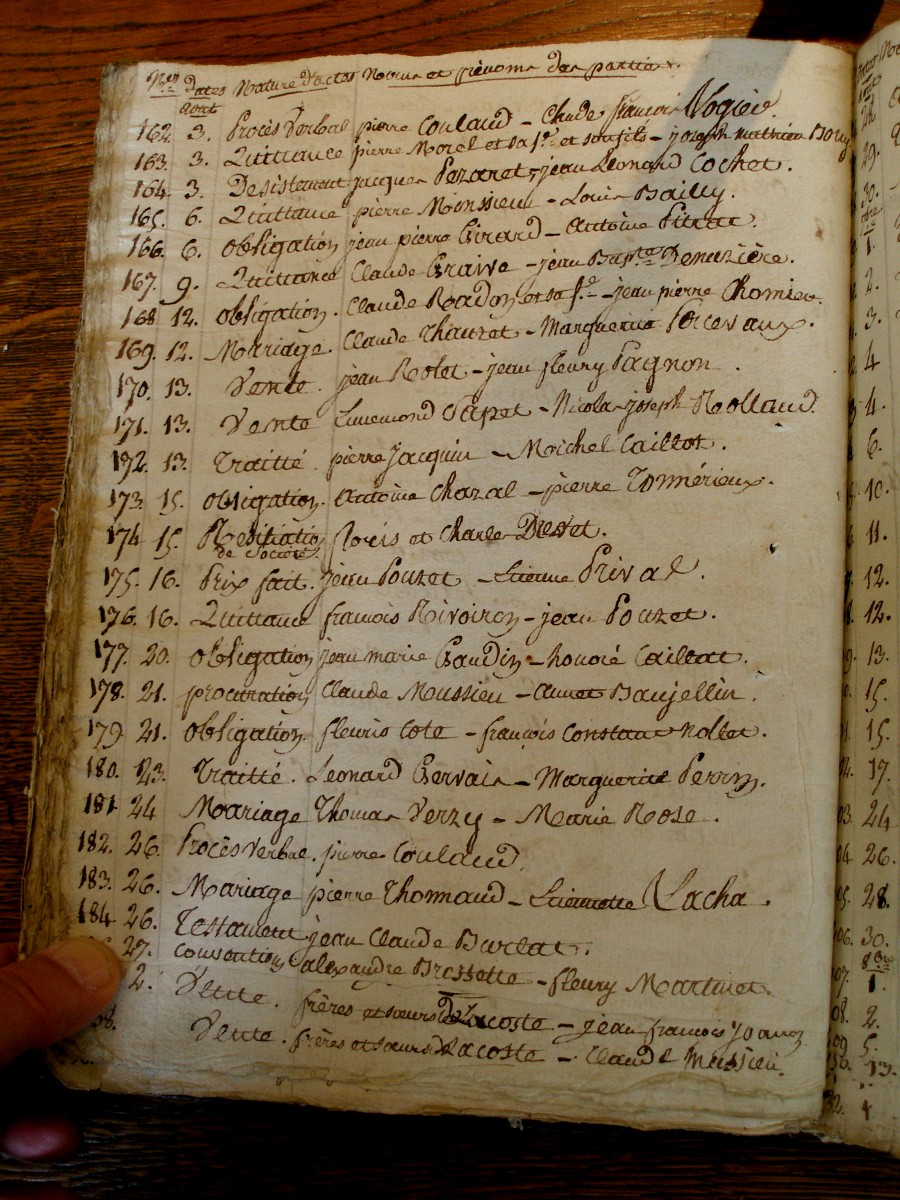 Nos Dates Nature d'actes Noms et prénoms des parties.
Aout
162. 3. Procès Verbal pierre Coulaud - Claude françois Vogier.
163. 3. Quittance pierre Morel et sa fe. et son fils - joseph mathieu
164. 3. Desistement jacques Pezaret - jean Leonard Cochet.
165. 6. Quittance pierre Monssieu - Louis Bailly.
166. 6. obligation jean pierre Girard - Antoine Pitrat.
167. 9. Quittance Claude - jean Bapte Denuzière.
168 12. obligation. Claude Radon et sa fe - jean pierre Chomier.
169. 12. Mariage. Claude Thauzet - Marguerite Forcevaux.
170. 13. Vente. jean Rolet - jean fleury Pagnon.
171. 13. Vente Sapet - Nicolas joseph Rolland.
172. 13. Traitté. pierre Jacquin - Michel Caillot.
173. 15. obligation. Antoine Chazal - pierre Tonnérieux.
174 15. Resiliation floris et Charles Drevet.
de Societé.
175. 16. Prix fait. jean Pouzet - Etienne Prival.
176. 16. Quittance françois Rivoiron - jean Pouzet.
177. 20. obligation jean marie Gaudin - honoré Caillat.
178. 21. procuration Claude Moussieu - annet Baujellin.
179 21. obligation. fleuris Cote - françois Constant Nollet.
180. 23. Traitté. Leonard Gervais - Marguerite Perrin.
181 24 Mariage Thomas Verzy - Marie Rose.
182. 26. Procès Verbal. pierre Coulaud
183. 26. Mariage pierre Thomaud - Etiennette Lacha.
184 26. Testament jean Claude Burlat.
27. Convention alexandre Brossette - fleury Martinet.
2. Vente. frères et sœurs Delacoste - jean françois Joanez
Vente. frères et sœurs Delacoste - Claude mussieu.